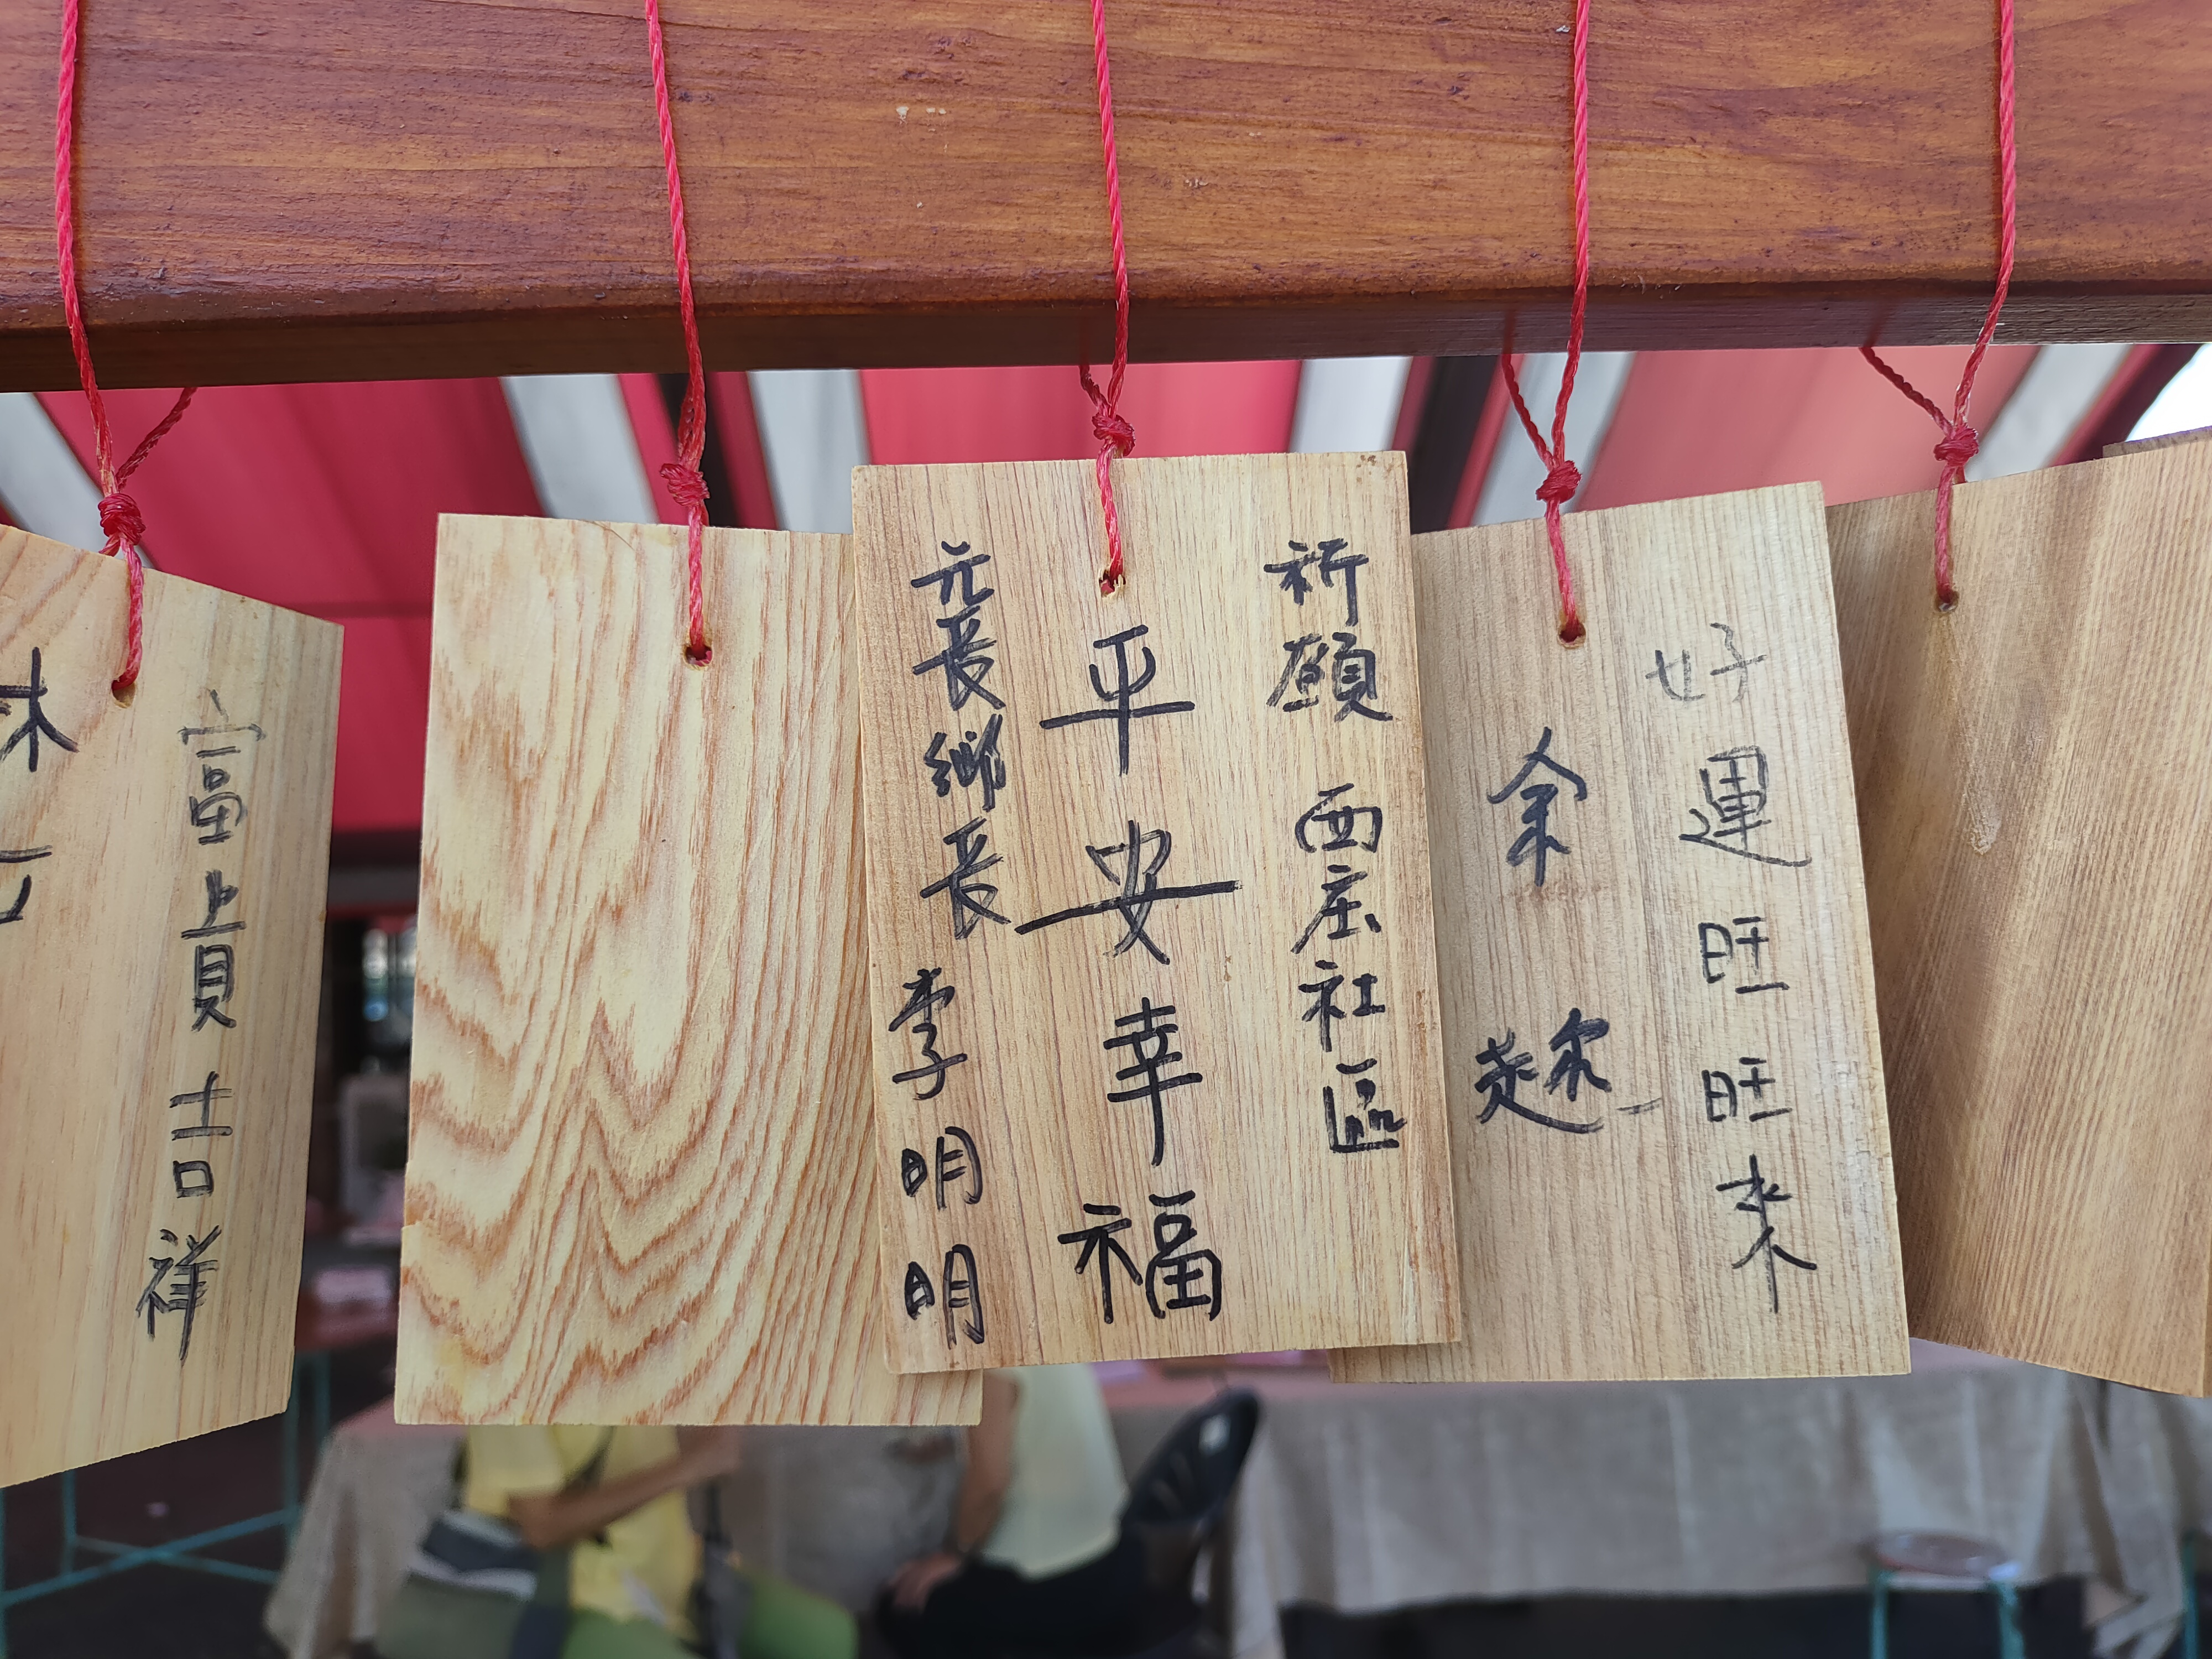 富貴吉祥
祈願 西庄社區
平安幸福
元長鄉長 李明明
好運旺旺來
余